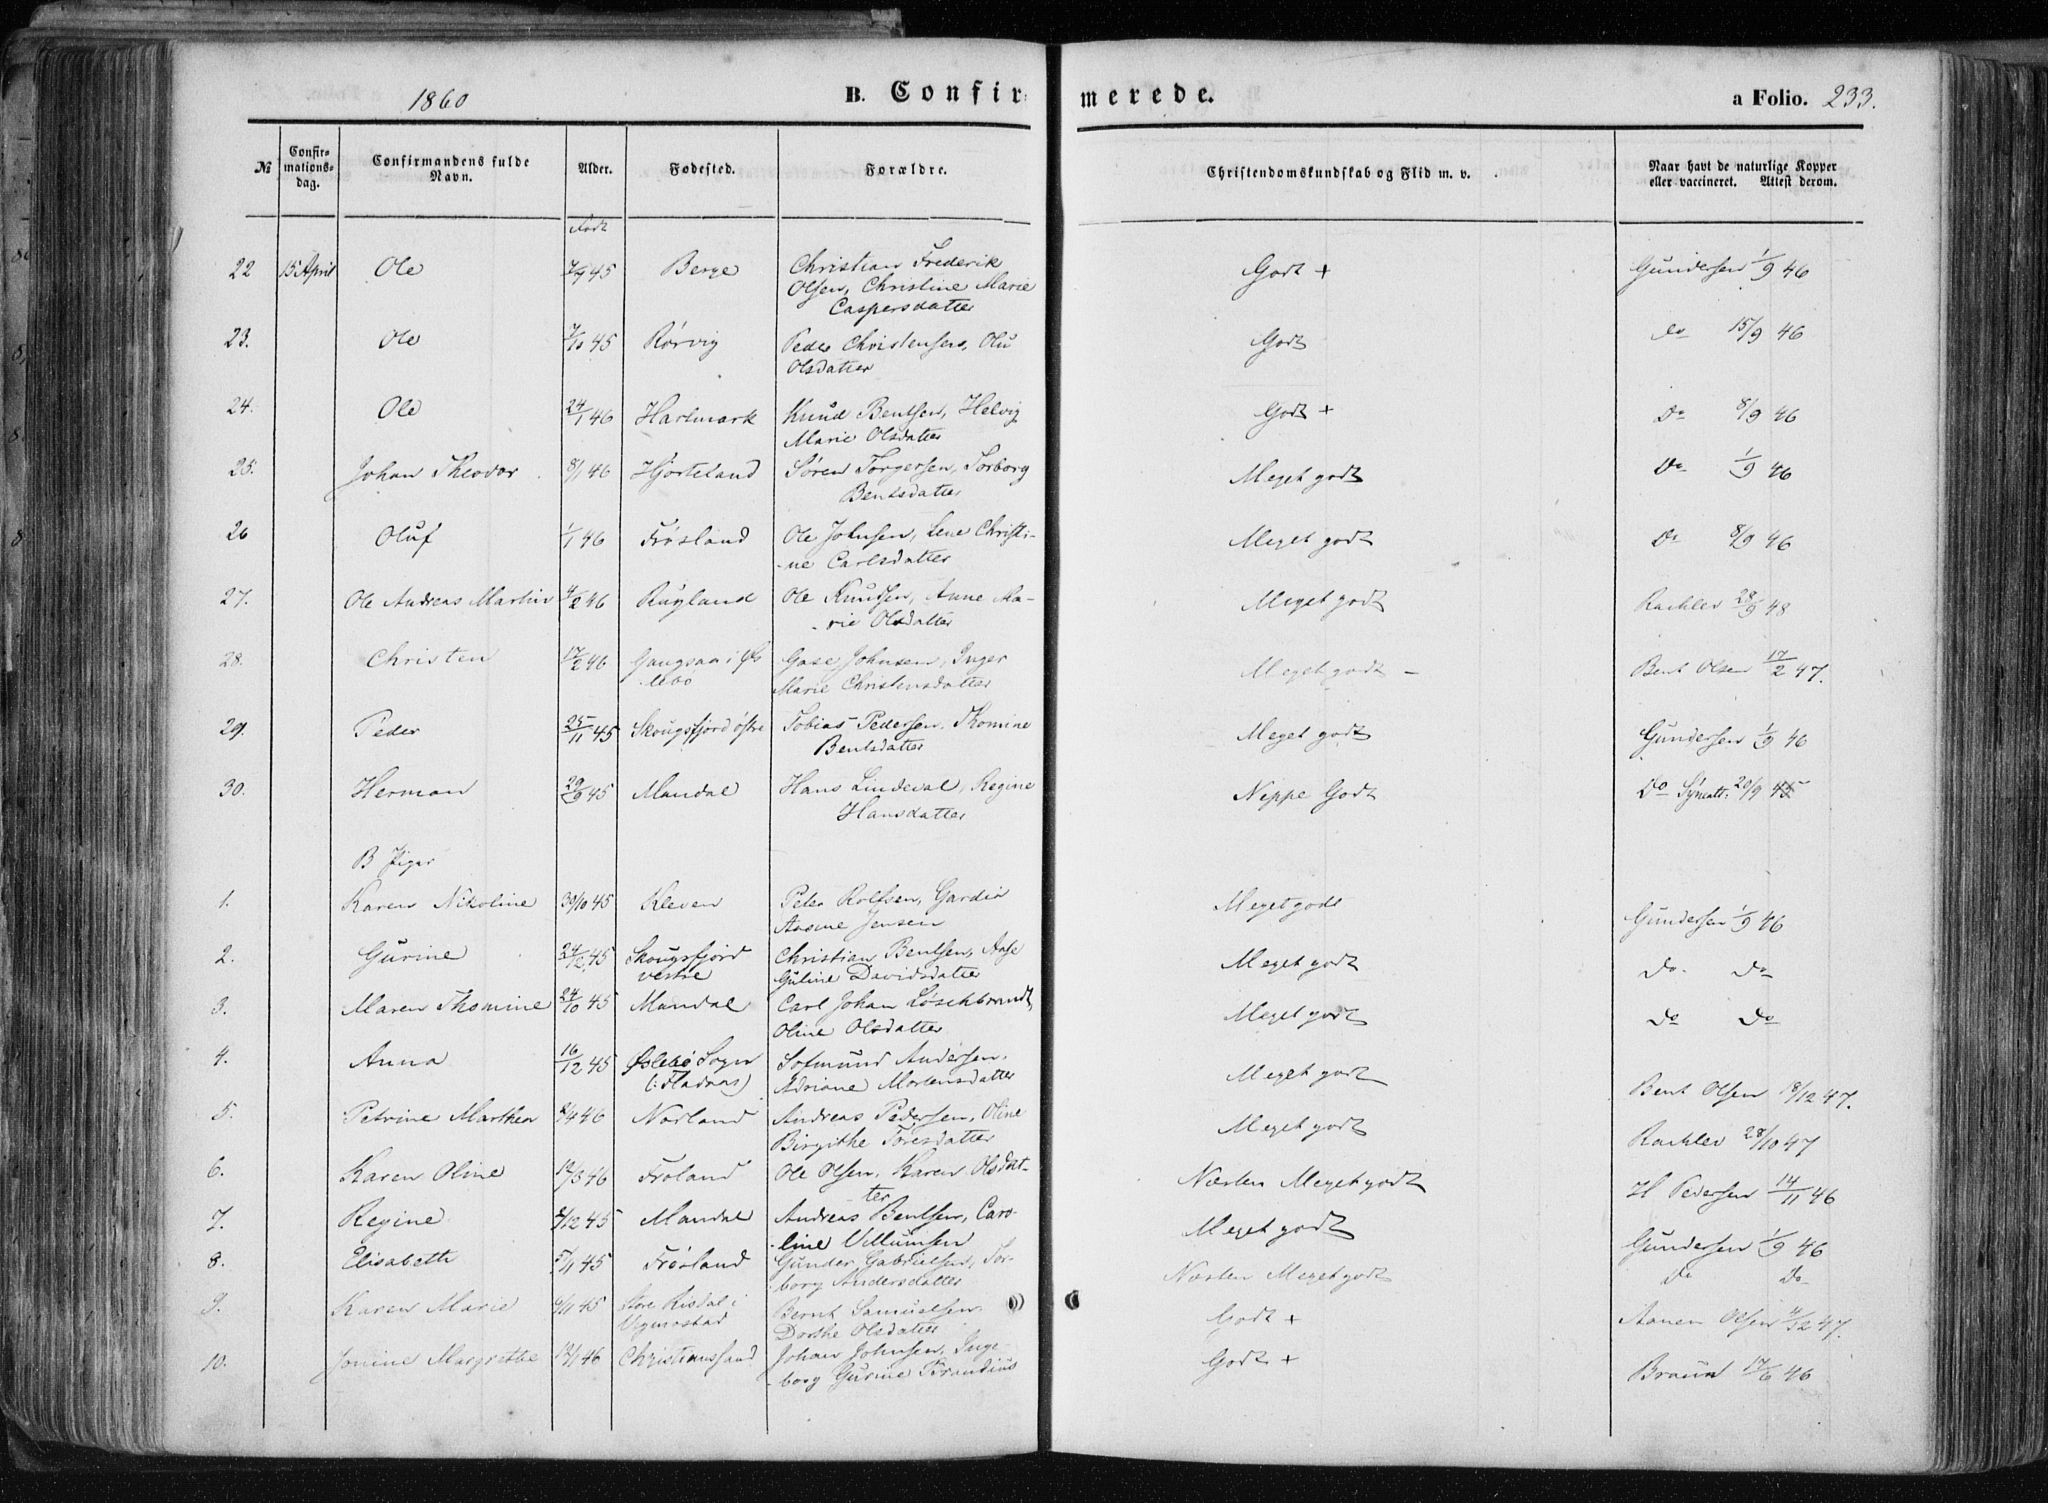 1860 B. Confirmerede. a Folio. 233.
№ Confirmationsdag. Confirmandens fulde Navn. Alder. Fødested. Forældre. Christendomskundskab og Flid m. v. Naar havt de naturlige Kopper eller vaccineret. Attest derom.
Født
22 15 April Ole 45 Berge Christian Frederik Godt + Gundersen 1/9 46
Olsen, Christine Marie
Caspersdatter
23. Ole 7/10 45 Rørvig Peder Christensen, Olu Godt do 15/9 46
Olsdatter
24. Ole 24/1 46 Hartmark Knud Bentsen, Helvig Godt + Do 8/9 46
Marie Olsdatter
25. Johan Theodor 8/1 46 Hjorteland Søren Torgersen, Torborg Meget godt Do 1/9 46
Bentsdatter
26 Oluf 1/1 46 Frøsland Ole Johnsen, Lene Christi- Meget godt Do 8/9 46
-ne Carlsdatter
27. Ole Andreas Martin 4/2 46 Rugland Ole Knudsen, Anne Ma- Meget godt Rachlev 28/9 48
-rie Olsdatter
28. Christen 17/2 46 Gangsaa i Øs Johnsen, Inger Meget godt - Bent Olsen 17/2 47.
lebo Marie Christensdatter
29. Peder 25/11 45 Skougsfjord østre Tobias Pedersen, Thomine Meget godt Gundersen 1/9 46
Bentsdatter
30. Herman 29/9 45 Mandal Hans Lindeval, Regine Neppe Godt Do 20/9 45
Hansdatter
B Piger
1. Karen Nikoline 30/10 45 Kleven Peter Rolfsen, Meget godt Gundersen 1/9 46
Jensen
2. Gurine 24/12 45 Skougsfjord Christian Bentsen, Aase Meget godt Do. Do
vestre Guline Davidsdatter
3. Maren Thomine 24/10 45 Mandal Carl Johan Løschbrandt, Meget godt Do Do
Oline Olsdatter
4. Anna 16/12 45 Øslebø Sogn Sofmund Andersen, Meget godt Bent Olsen 18/12 47.
(: Fladaas) Adriane Mortensdatter
5. Petrine Marthea 46 Nodland Andreas Pedersen, Oline Meget godt Rachlev 28/10 47
Birgithe Toresdatter
6. Karen Oline 12/3 46 Froland Ole Olsen, Karen Olsdat- Næsten Meget godt H Pedersen 14/11 46
ter
7. Regine 45 Mandal Andreas Bentsen, Caro- Meget godt Gundersen 1/9 46
-line Villumsen
8. Elisabeth 5/11 45 Frøsland Gunder Gabrielsen, Tor- Næsten Meget godt Do Do
borg Andersdatter
9. Karen Marie 6/11 45 Store Risdal i Bernt Samuelsen Godt + Aanen Olsen 4/12 47.
Vigmostad Dorthe Olsdatter
10. Jonine Margrethe 12/1 46 Christianssand Johan Johnsen, Inge- Godt + Braun 17/6 46
-borg Gurine Brandius